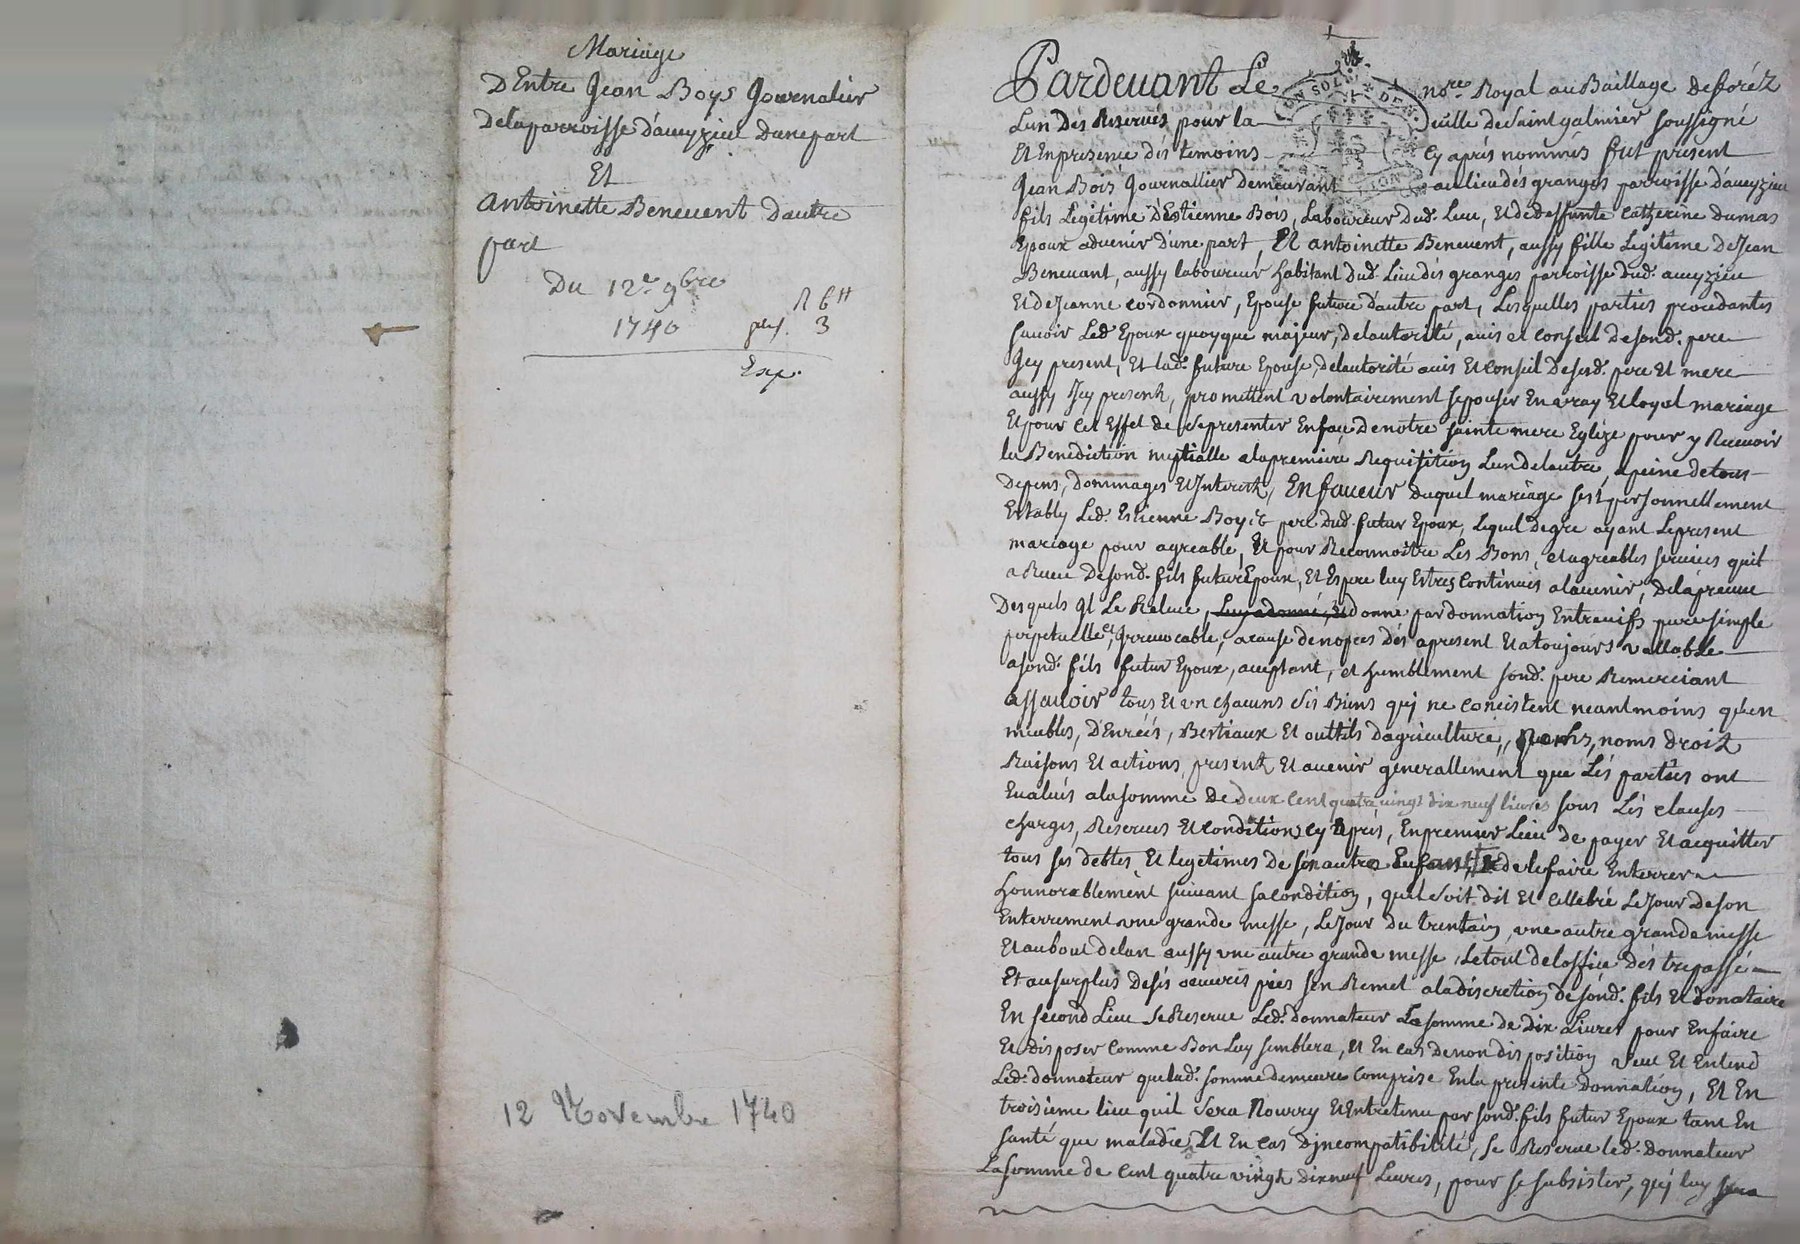 Mariage
D'Entre Jean Boys Journalier
Delaparroisse d'aveyzieu Dunepart
Et
Antoinette Benevent Dautre
part
Du 12e 9bre
1740
3
Exp.
12 Novembre 1740
Pardevant Le nore Royal au Baillage deforéz
Lun Dés Reservés pour la Veille deSaint galmier soussigné
Et Enpresence dés temoins Cy aprés nommés fut present
Jean Bois Journallier demeurant aulieu dés granges parroisse d'aveyzieu
fils Legitime d'Estienne Bois, Laboureur Dud. Lieu, Et dedeffunte Catherine dumas
Epoux advenir d'une part, Et antoinette Benevent, aussy fille Legitime DeJean
Benevant, aussy laboureur habitant dud. Lieu dés granges parroisse dud. aveyzieu
Et deJeanne Cordonnier, Epouse future d'autre part, Lesquelles parties procedantes
savoir Led. Epoux quoyque majeur, delautorité, avis et Conseil de sond. pere
Jcy present, Et lad. future Epouse, delautorité avis Et Conseil desesd. pere Et mere
aussy Jcy presents, promettent volontairement sepouser En vray Et loyal mariage
Et pour Cet Effet de se presenter Enface De notre sainte mere Eglize pour y Recevoir
la Benediction nuptialle alapremiere Requisition Lun delautre, apeine detous
Depens, dommages Et Interets, En faveur duquel mariage sest personnellement
Estably Led. Estienne Boys pere dud. futur Epoux, Lequel degre ayant Lepresent
mariage pour agreable, Et pour Reconnoitre Les Bons, et agreables services quil
a Receu de sond. fils futur Epoux, Et Espere luy Estres Continués alavenir, Delapreuve
Desquels Jl Le Releve, Luy a donné, Et donne par donnation Entrevifs pure simple
perpetuelle et Jrrevocable, acause denopces dés apresent Et atoujours vallable
a sond. fils futur Epoux, aceptant, et humblement sond. pere Remerciant
assavoir tous Et un chacuns sés Biens qui ne Concistent neantmoins qu'en
meubles, d'Enréés, Bestiaux Et outtils dagriculture, noms droits
Raisons Et actions, presents Et avenir generallement que Lés parties ont
Evalués alasomme de deux Cent quatre vingt dix neuf livres sous Lés clauses
charges, Reserves Et Conditions cy Aprés, En premier Lieu de payer Et acquitter
tous ses debtes Et legitimes de ses autres Enfants, Et de le faire Enterrer
honnorablement suivant sa Condition, quil soit dit Et Cellebré LeJour de son
Enterrement une grande messe, LeJour du trentain, une autre grande messe
Et aubout delan aussy une autre grande messe, Letout deloffice dés trepassé
Et ausurplus desés oeuvres pies s'en Remet aladiscretion de sond. fils Et donataire
En second Lieu se Reserve Led. donnateur La somme de Dix Livres pour En faire
Et disposer Comme Bon Luy semblera, Et En cas denon disposition veut Et Entend
Led. donnateur quelad. somme demeure Comprise Enla presente donnation, Et En
troisieme lieu quil sera Nourry Et Entretenu par sond. fils futur Epoux tant En
santé que maladie, Et En cas d'jncompatibilité, se Reserve led. donnateur
La somme de Cent quatre vingts dix neuf Livres, pour se subsister, qui luy sera